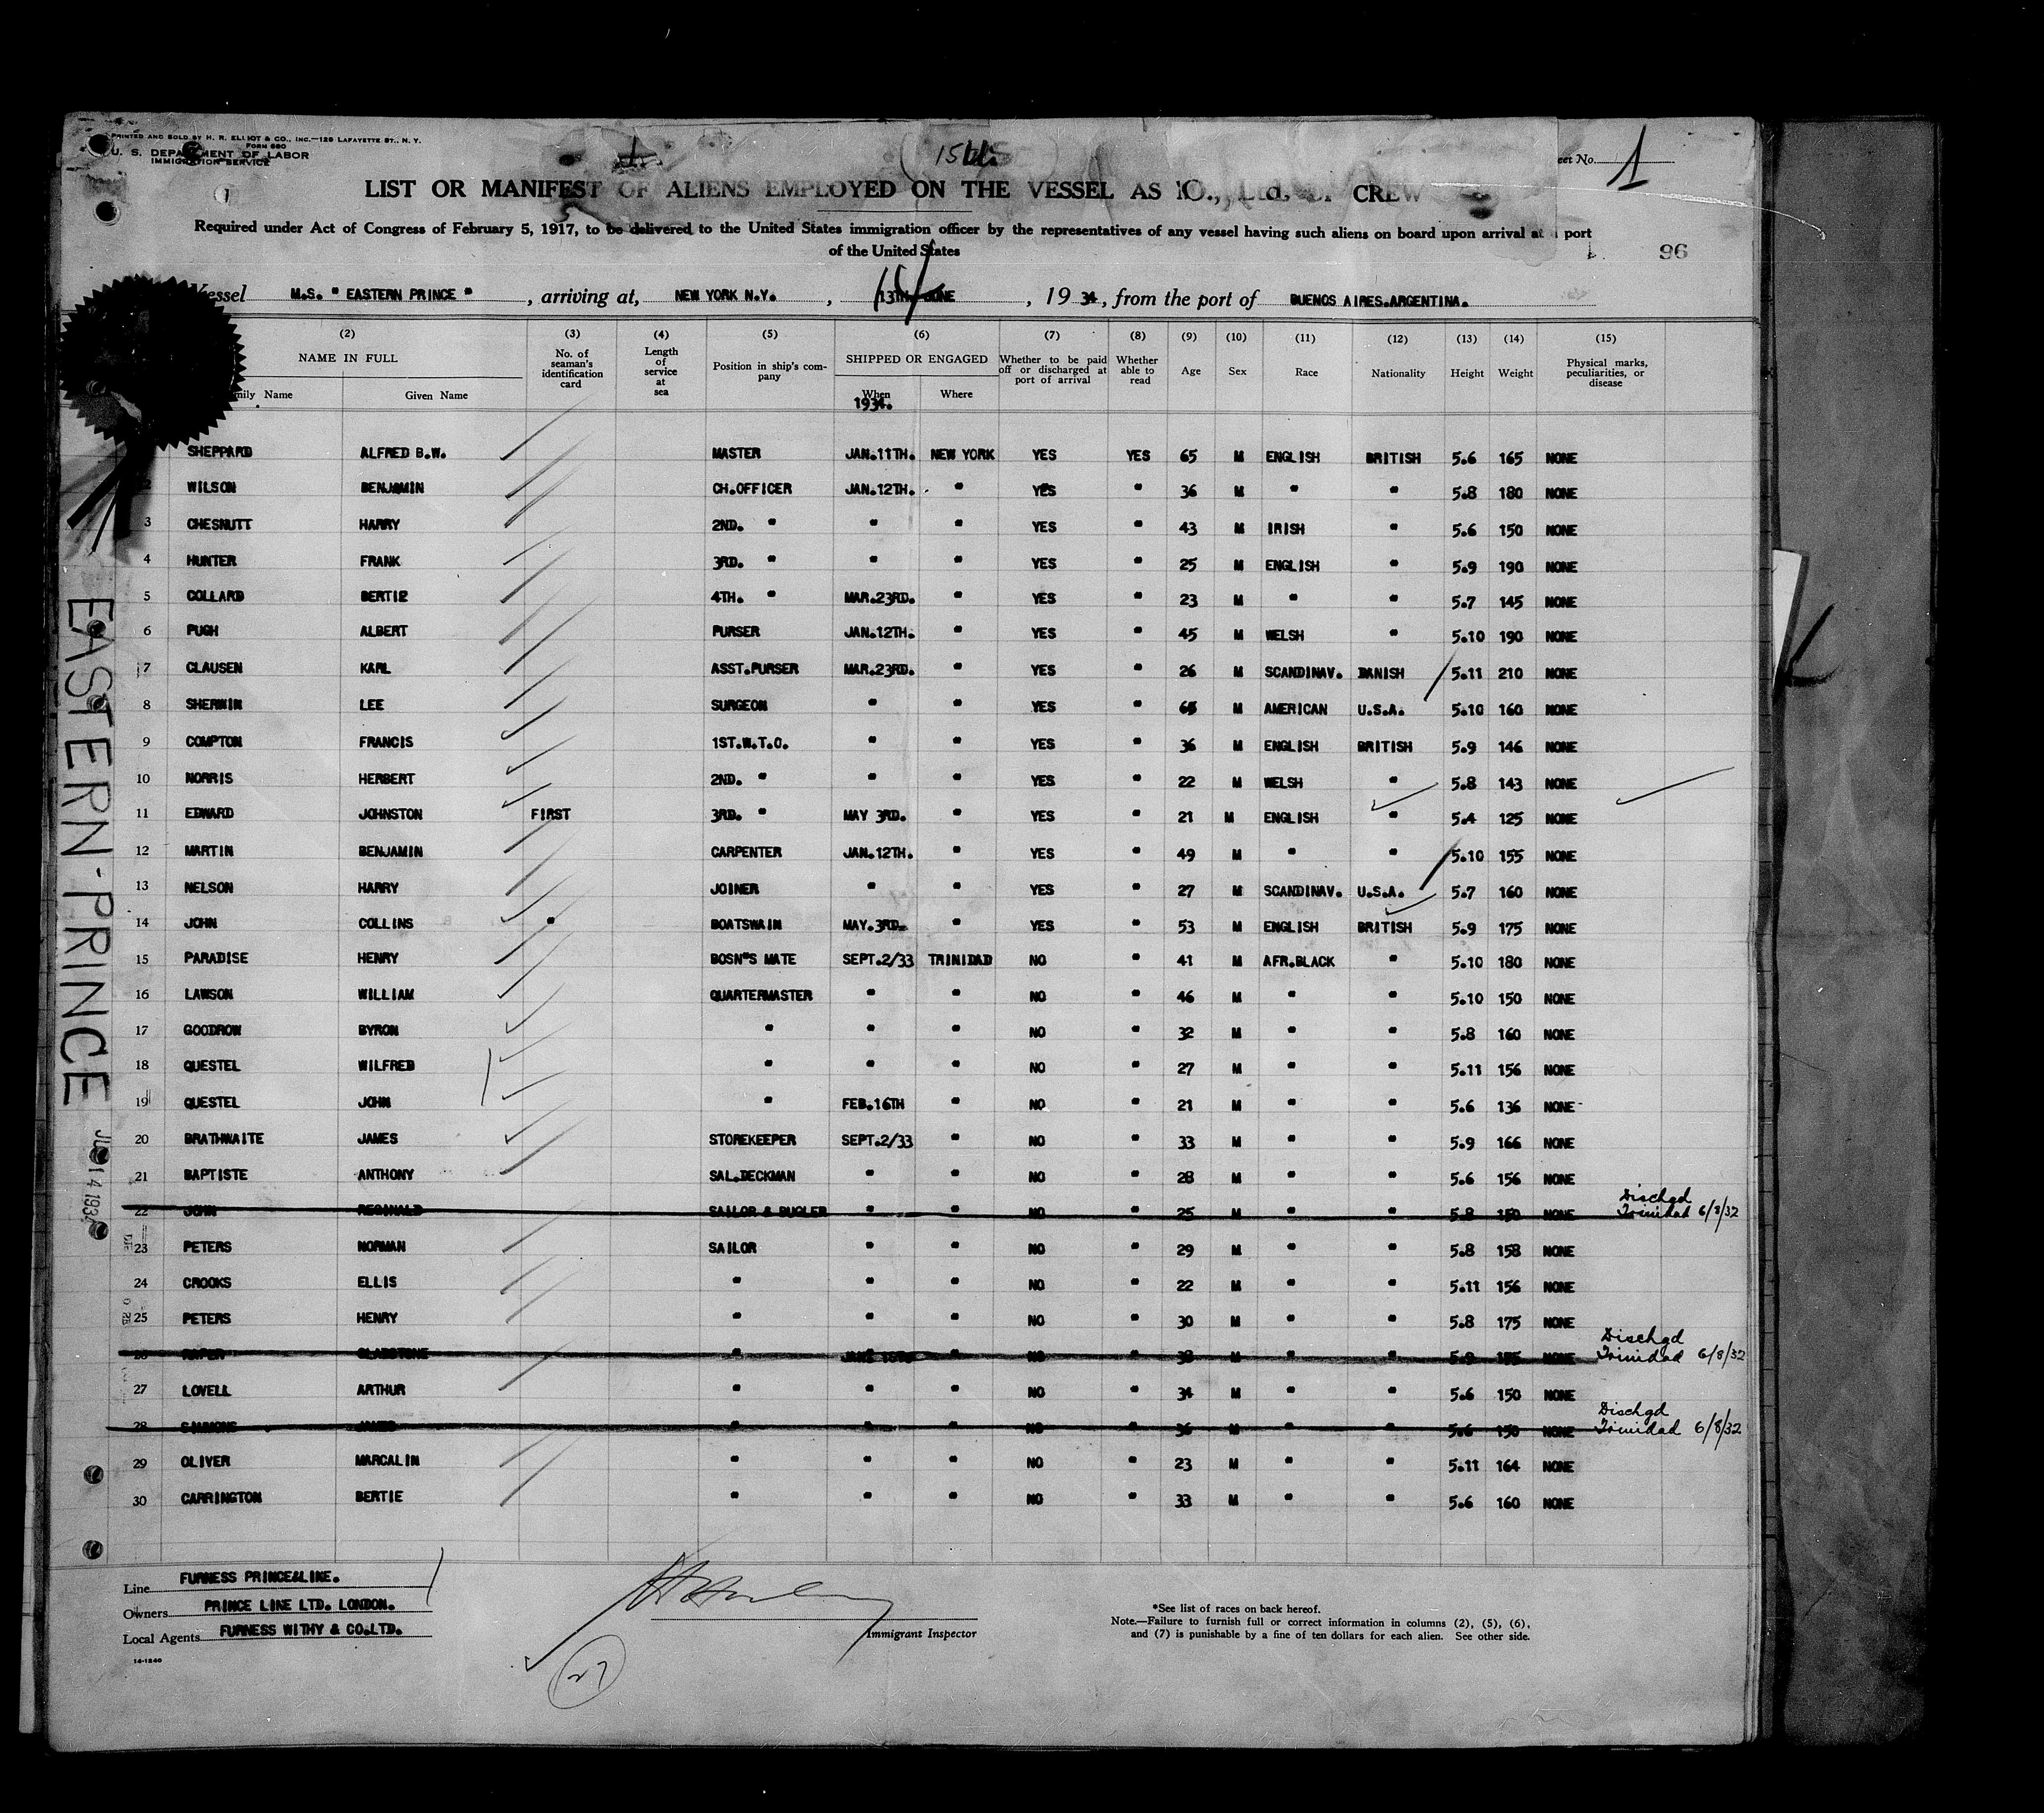 PRINTED AND SOLD BY H. R. ELLIOT & CO., INC.—128 LAFAYETTE ST., N. Y.
FORM 680
U. S. DEPARTMENT OF LABOR
IMMIGRATION SERVICE
Sheet No. 1
LIST OR MANIFEST OF ALIENS EMPLOYED ON THE VESSEL AS CREW
Required under Act of Congress of February 5, 1917, to be delivered to the United States immigration officer by the representatives of any vessel having such aliens on board upon arrival at port
of the United States
96
Vessel M.S. " EASTERN PRINCE " , arriving at, NEW YORK N.Y. , 13TH JUNE , 19 34, from the port of BUENOS AIRES.ARGENTINA.
(2) (3) (4) (5) (6) (7) (8) (9) (10) (11) (12) (13) (14) (15)
NAME IN FULL No. of seaman's identification card Length of service at sea Position in ship's company SHIPPED OR ENGAGED Whether to be paid off or discharged at port of arrival Whether able to read Age Sex Race Nationality Height Weight Physical marks, peculiarities, or disease
Family Name Given Name When Where
1934.
SHEPPARD ALFRED B.W. MASTER JAN.11TH. NEW YORK YES YES 65 M ENGLISH BRITISH 5.6 165 NONE
2 WILSON BENJAMIN CH.OFFICER JAN.12TH. " YES " 36 M " " 5.8 180 NONE
3 CHESNUTT HARRY 2ND. " " " YES " 43 M IRISH " 5.6 150 NONE
4 HUNTER FRANK 3RD. " " " YES " 25 M ENGLISH " 5.9 190 NONE
5 COLLARD BERTIE 4TH. " MAR.23RD. " YES " 23 M " " 5.7 145 NONE
6 PUGH ALBERT PURSER JAN.12TH. " YES " 45 M WELSH " 5.10 190 NONE
7 CLAUSEN KARL ASST.PURSER MAR.23RD. " YES " 26 M SCANDINAV. DANISH 5.11 210 NONE
8 SHERWIN LEE SURGEON " " YES " M AMERICAN U.S.A. 5.10 160 NONE
9 COMPTON FRANCIS 1ST.W.T.O. " " YES " 36 M ENGLISH BRITISH 5.9 146 NONE
10 NORRIS HERBERT 2ND. " " " YES " 22 M WELSH " 5.8 143 NONE
11 EDWARD JOHNSTON FIRST 3RD. " MAY 3RD. " YES " 21 M ENGLISH " 5.4 125 NONE
12 MARTIN BENJAMIN CARPENTER JAN.12TH. " YES " 49 M " " 5.10 155 NONE
13 NELSON HARRY JOINER " " YES " 27 M SCANDINAV. U.S.A. 5.7 160 NONE
14 JOHN COLLINS " BOATSWAIN MAY.3RD. " YES " 53 M ENGLISH BRITISH 5.9 175 NONE
15 PARADISE HENRY BOSN"S MATE SEPT.2/33 TRINIDAD NO " 41 M AFR.BLACK " 5.10 180 NONE
16 LAWSON WILLIAM QUARTERMASTER " " NO " 46 M " " 5.10 150 NONE
17 GOODROW BYRON " " " NO " 32 M " " 5.8 160 NONE
18 QUESTEL WILFRED " " " NO " 27 M " " 5.11 156 NONE
19 QUESTEL JOHN " FEB.16TH " NO " 21 M " " 5.6 136 NONE
20 BRATHWAITE JAMES STOREKEEPER SEPT.2/33 " NO " 33 M " " 5.9 166 NONE
21 BAPTISTE ANTHONY SAL.DECKMAN " " NO " 28 M " " 5.6 156 NONE
22 JOHN REGINALD SAILOR & BUGLER " " NO " 25 M " " 5.8 150 NONE Dischgd Trinidad 6/8/32
23 PETERS NORMAN SAILOR " " NO " 29 M " " 5.8 158 NONE
24 CROOKS ELLIS " " " NO " 22 M " " 5.11 156 NONE
25 PETERS HENRY " " " NO " 30 M " " 5.8 175 NONE
26 GLADSTONE " " NO " 38 M " " 5.9 NONE Dischgd Trinidad 6/8/32
27 LOVELL ARTHUR " " " NO " 34 M " " 5.6 150 NONE
28 SIMMONS JAMES " " " NO " 36 M " " 5.6 150 NONE Dischgd Trinidad 6/8/32
29 OLIVER MARCALIN " " " NO " 23 M " " 5.11 164 NONE
30 CARRINGTON BERTIE " " " NO " 33 M " " 5.6 160 NONE
EASTERN-PRINCE
Line FURNESS PRINCE&LINE.
Owners PRINCE LINE LTD. LONDON.
Local Agents FURNESS WITHY & CO.LTD.
14-1240
Immigrant Inspector
27
*See list of races on back hereof.
Note.—Failure to furnish full or correct information in columns (2), (5), (6),
and (7) is punishable by a fine of ten dollars for each alien. See other side.